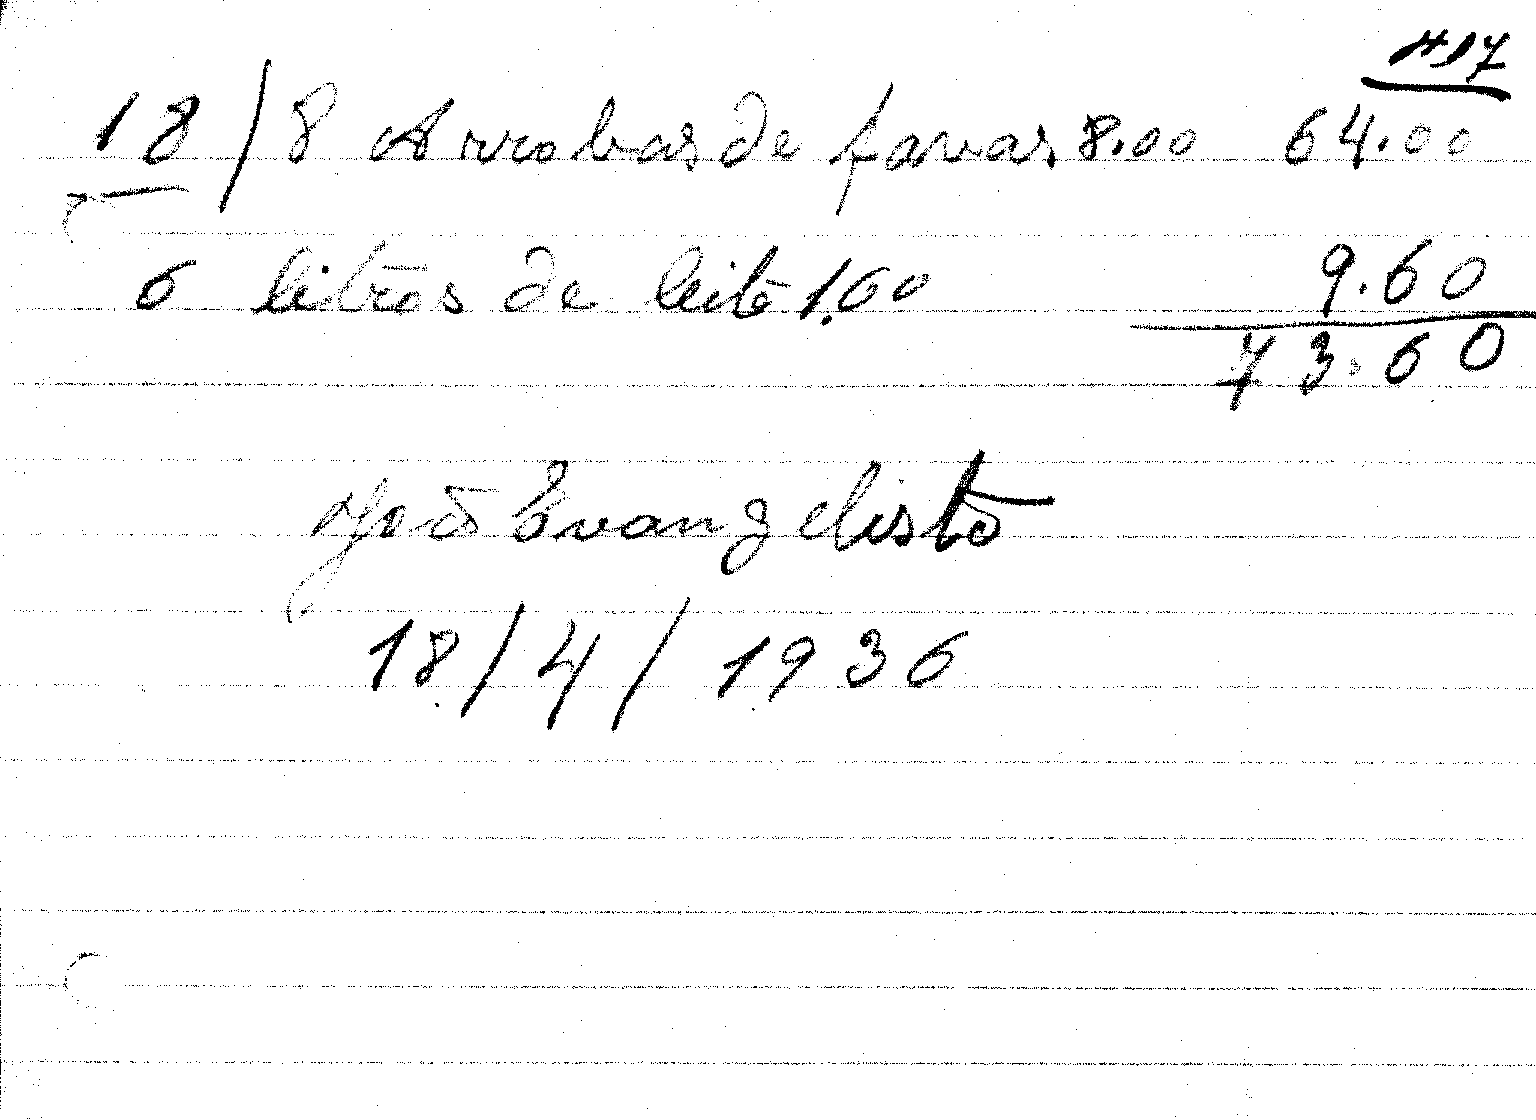 417
18/8 Arrobas de favas 8.00 64.00
6 litros de leite 1.60 9.60
73.60
João Evangelista
18/4/1936